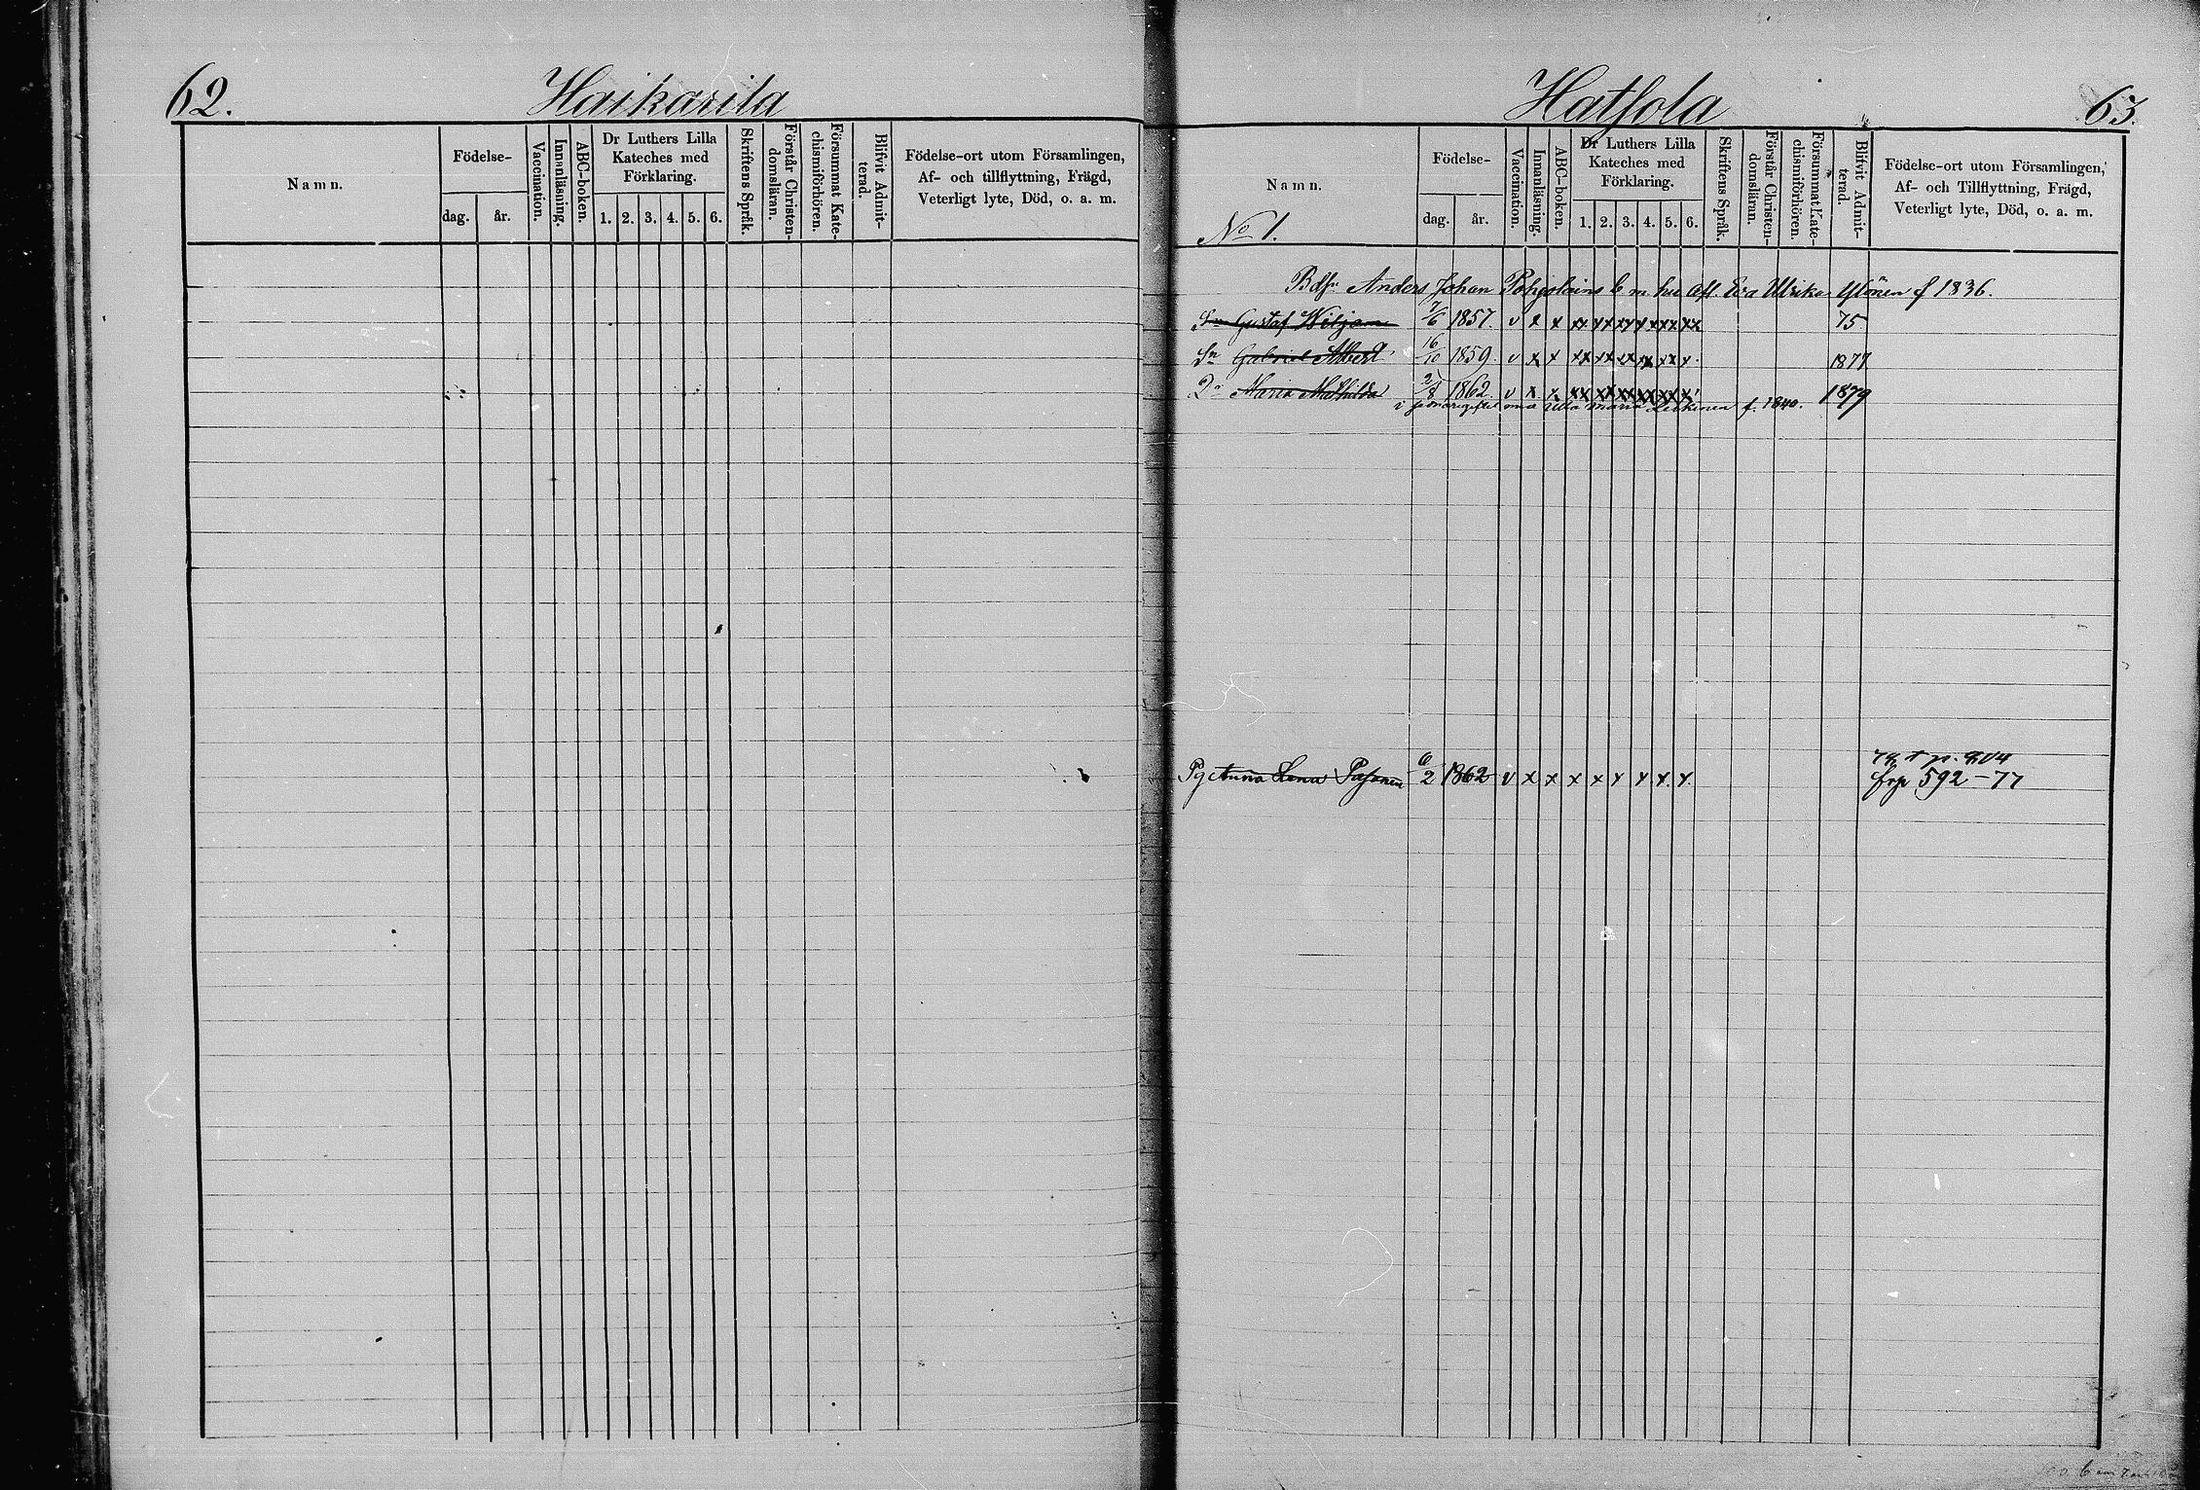 62.
Haikarila
Namn.
Födelse-
dag.
år.
Vaccination.
Innanläsning.
ABC-boken.
Dr Luthers Lilla
Kateches med
Förklaring.
1. 2. 3. 4. 5. 6.
Skriftens Språk.
Förstår Christen-
domsläran.
Försummat Kate-
chismiförhören.
Blifvit Admit-
terad.
Födelse-ort utom Församlingen,
Af- och tillflyttning, Frägd,
Veterligt lyte, Död, o. a. m.
Hatsola
63.
Namn.
No 1.
Födelse-
dag.
år.
Vaccination.
Innanläsning.
ABC-boken.
Dr Luthers Lilla
Kateches med
Förklaring.
1. 2. 3. 4. 5. 6.
Skriftens Språk.
Förstår Christen-
domsläran.
Försummat Kate-
chismiförhören.
Blifvit Admit-
terad.
Födelse-ort utom Församlingen,
Af- och Tillflyttning, Frägd,
Veterligt lyte, Död, o. a. m.
Anders Johan Pohjolains b m. hu afl. Eva Ulrika Ylönen f 1836.
Sn Gustaf Wiljam 7/6 1857. v x x xx xx xx xx xx xx 75
Sn Gabriel Albert 16/10 1859. v x x xx xx xx xx xx x. 1877
Dr Maria Mathilda 1862. v x x xx xx xx xx xx x 1879
i Maria f. 1840.
Pg Anna Lena Pasanen 6/2 1862 v x x x x x x x x.
frp 592-77